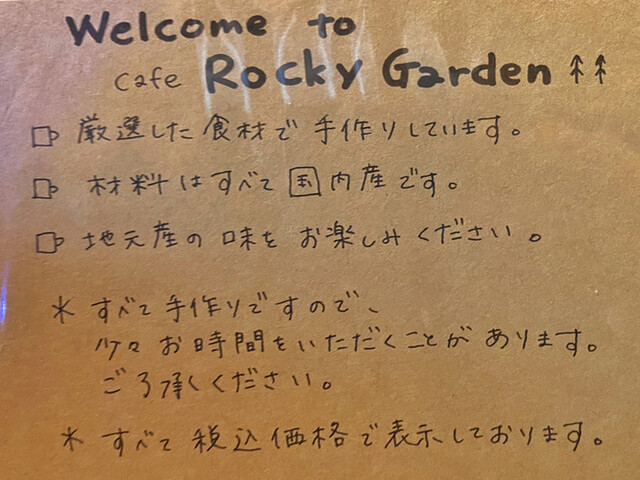 Welcome to
cafe Rocky Garden
厳選した食材で手作りしています。
材料はすべて国内産です。
地元産の味をお楽しみください。
* すべて手作りですので、
少々お時間をいただくことがあります。
ご了承ください。
* すべて税込価格で表示しております。